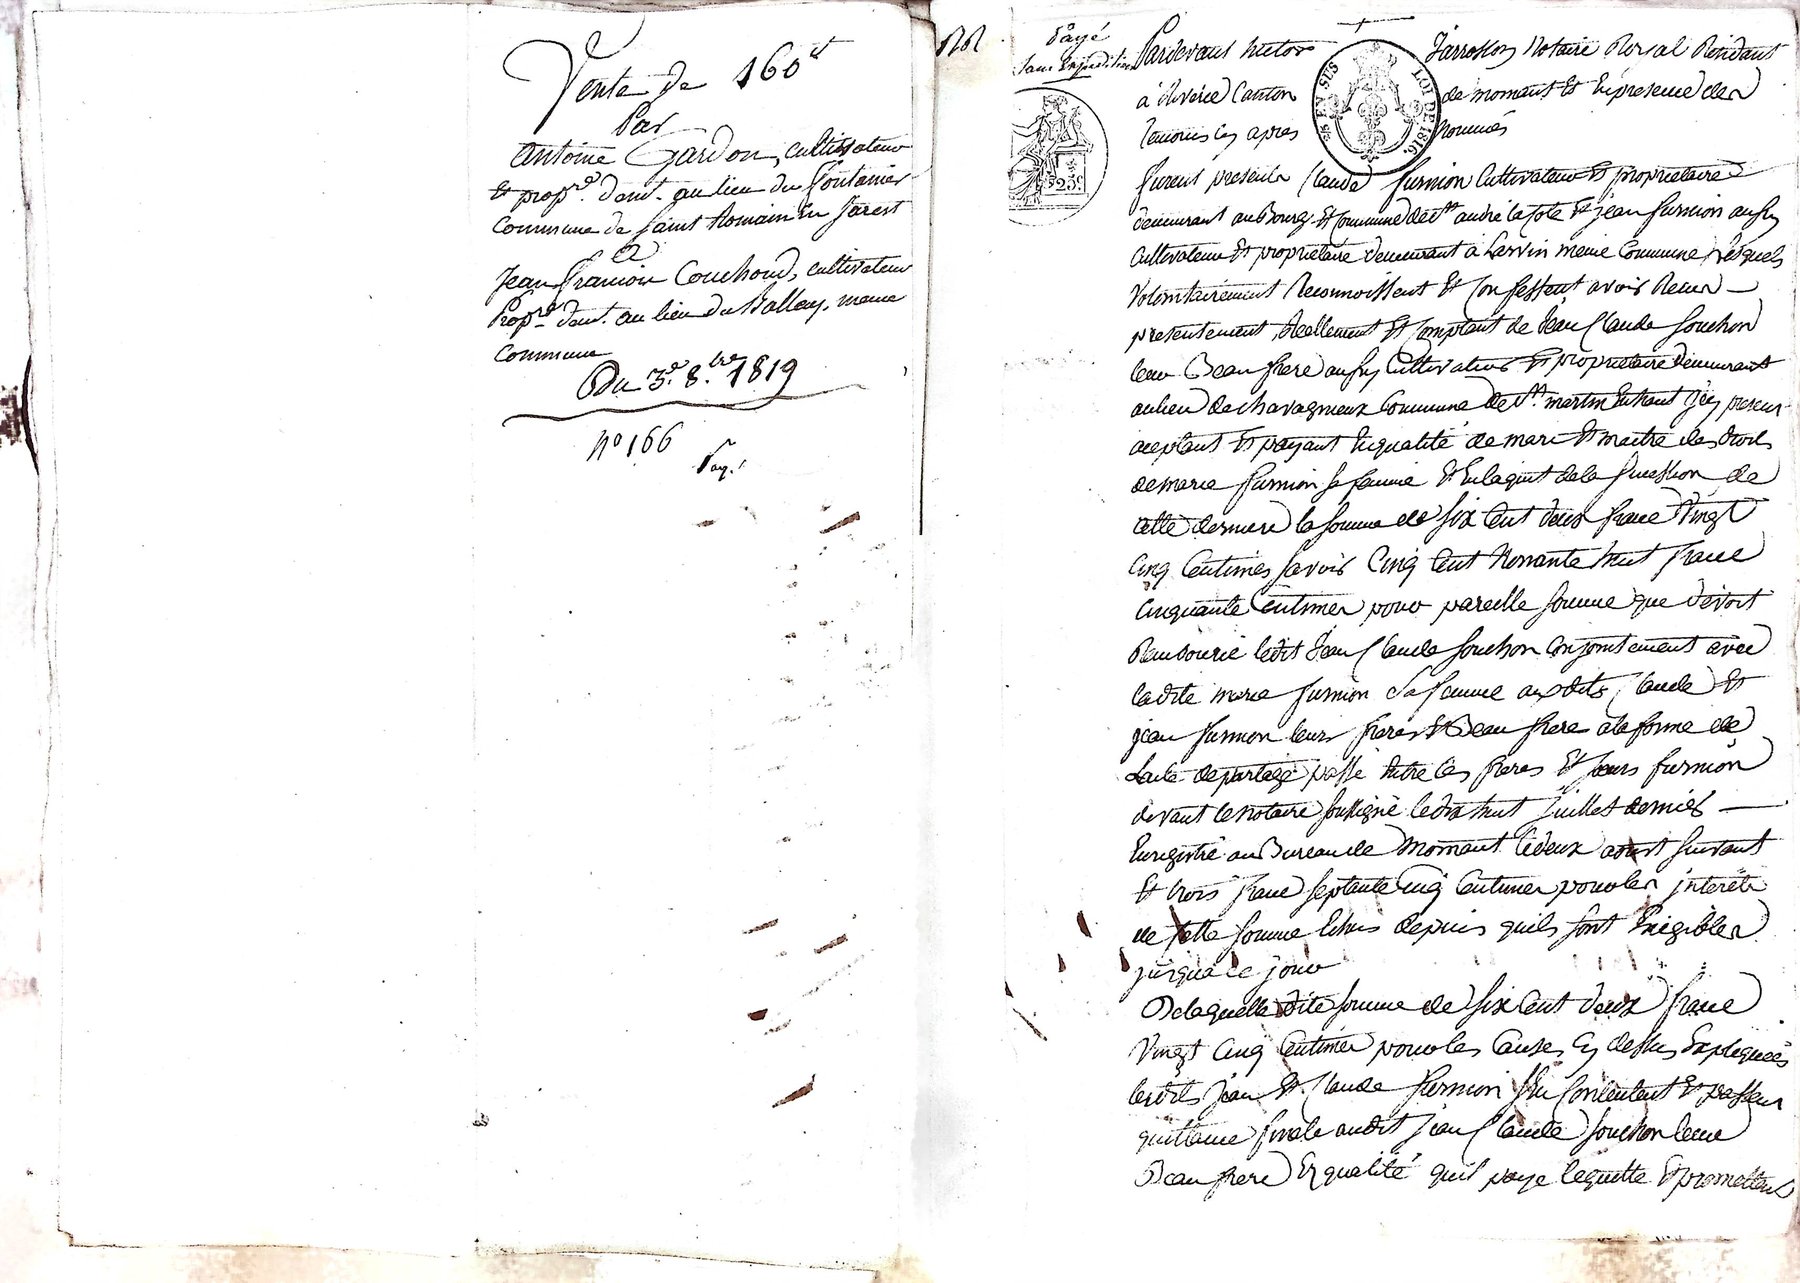 Vente de 160 ft
Par
antoine Gardon, cultivateur
et propre. demt. au lieu du fontanier
commune de saint Romain en Jarest
a
Jean francois Couchoud, cultivateur
Propre. demt. au lieu du Ballay, meme
commune
Du 3e. 8.bre 1819
No 166
Pay.
Payé
sans Expedition
EN SUS LOI DE 1816.
25c
Pardevant hector Jarrosson Notaire Royal Residant
à Riverie Canton de mornant Et En presence des
temoins cy apres Nommés
furent présents Claude furnion Cultivateur Et propriétaire
demeurant au Bourg Et Commune de St andré la Cote Et jean furnion aussy
Cultivateur Et propriétaire demeurant à Larvin meme Commune Lesquels
Volontairement Reconnoissent Et Confessent avoir Recu
presentement Reellement Et Comptant de Jean Claude Souchon
leur Beau frere aussy Cultivateur Et propriétaire demeurant
au lieu de chavagnieux Commune de St. martin En haut Icy present
acceptant Et payant En qualité de mari Et maitre des droits
de marie furnion sa femme Et En laquit de la succession de
cette derniere la somme de Six Cent deux franc Vingt
Cinq Centimes savoir Cinq Cent Nonante huit franc
Cinquante Centimes pour pareille somme que devoit
ledit Jean Claude Souchon Conjointement avec
ladite marie furnion Sa femme auxdits Claude Et
jean furnion leurs freres Et Beau frere a la forme de
Lacte de partage passé Entre les freres Et sœurs furnion
devant le Notaire soussigné le dix huit Juillet dernier
Enregistré au Bureau de Mornant le deux aoust suivant
Et trois franc septante Cinq Centimes pour les interêts
de cette somme Echus depuis quils sont Exigibles
jusqua ce jour
De laquelle dite somme de Six Cent deux franc
Vingt Cinq Centimes pour les Causes Cy dessus Expliquées
lesdits Jean Et Claude furnion sen Contentent Et passent
quittance finale audit Jean Claude Souchon leur
Beau frere En qualité quil paye lequitte Et promettent